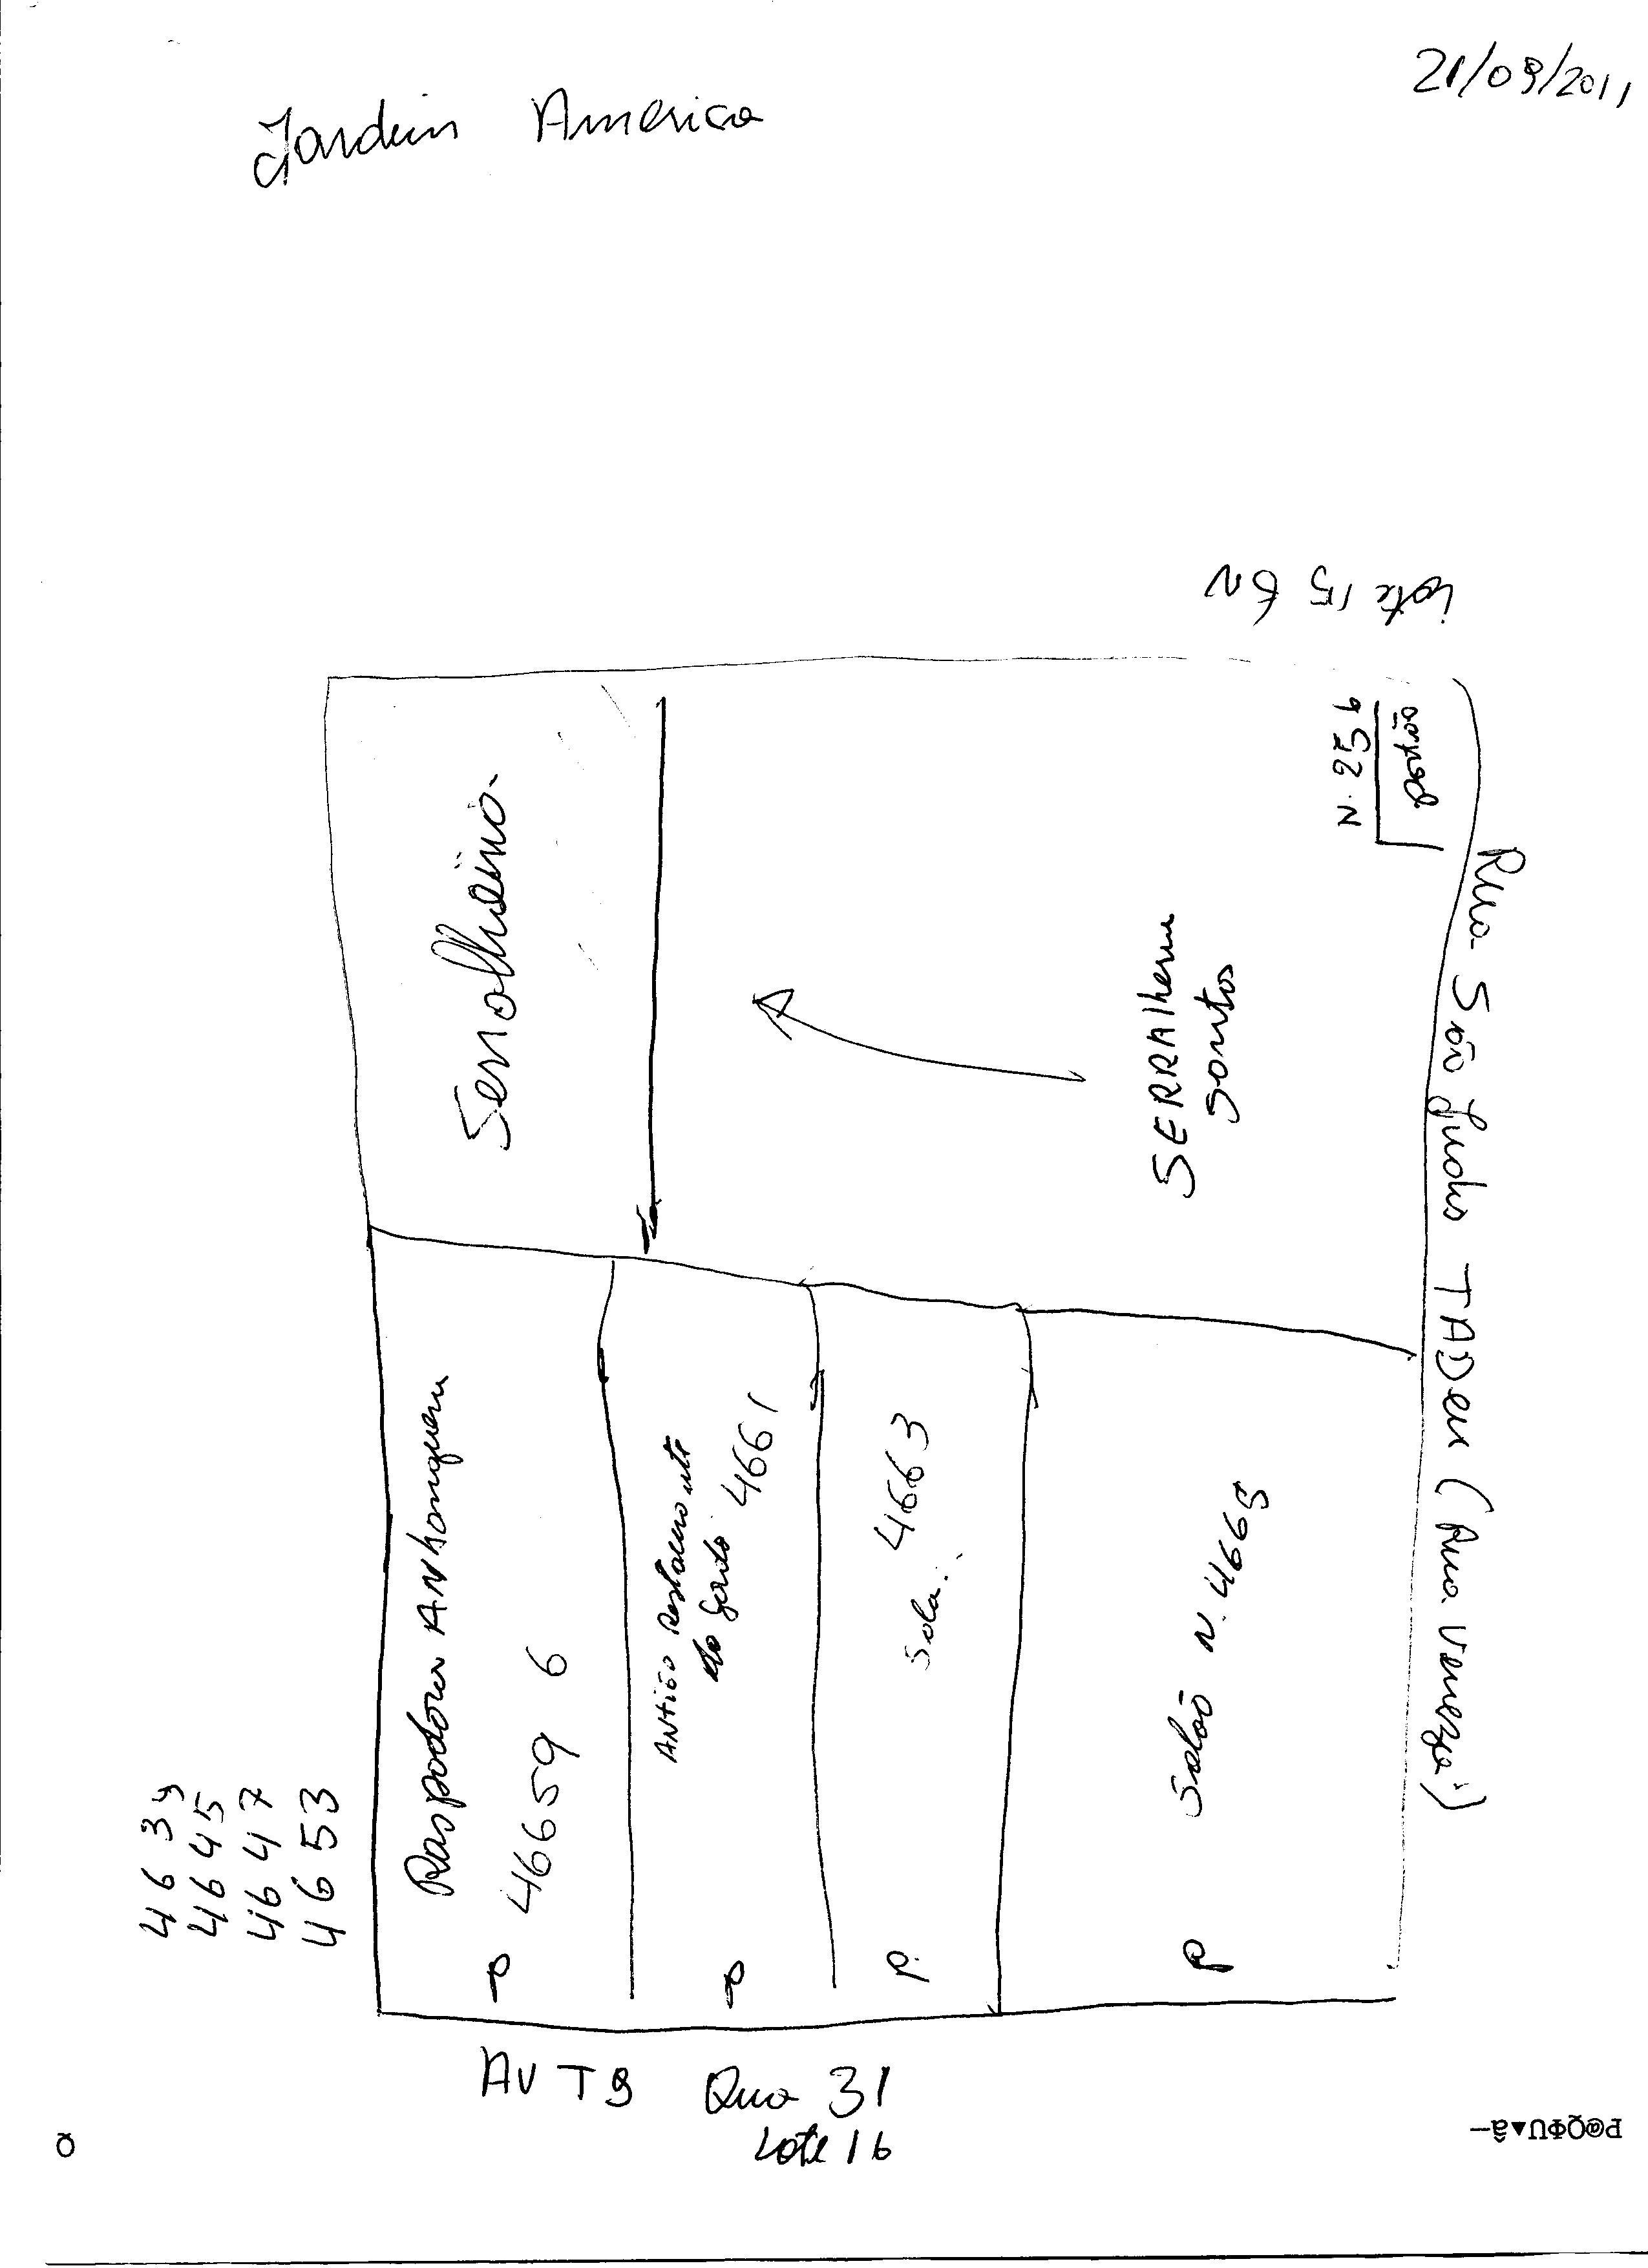 21/09/2011
Jardim America
Lote 15
N. 256
portão
Rua São Judas TADeu (Rua Veneza)
SERRALheria
Santos
Raspadora ANhanguera
46659 6
do Gordo 4661
Sala. 4663
Salão N. 4665
P
P
4639
4645
4647
4653
AV T9 Qua 31
Lote 16
P@QΦU▼â—
Q